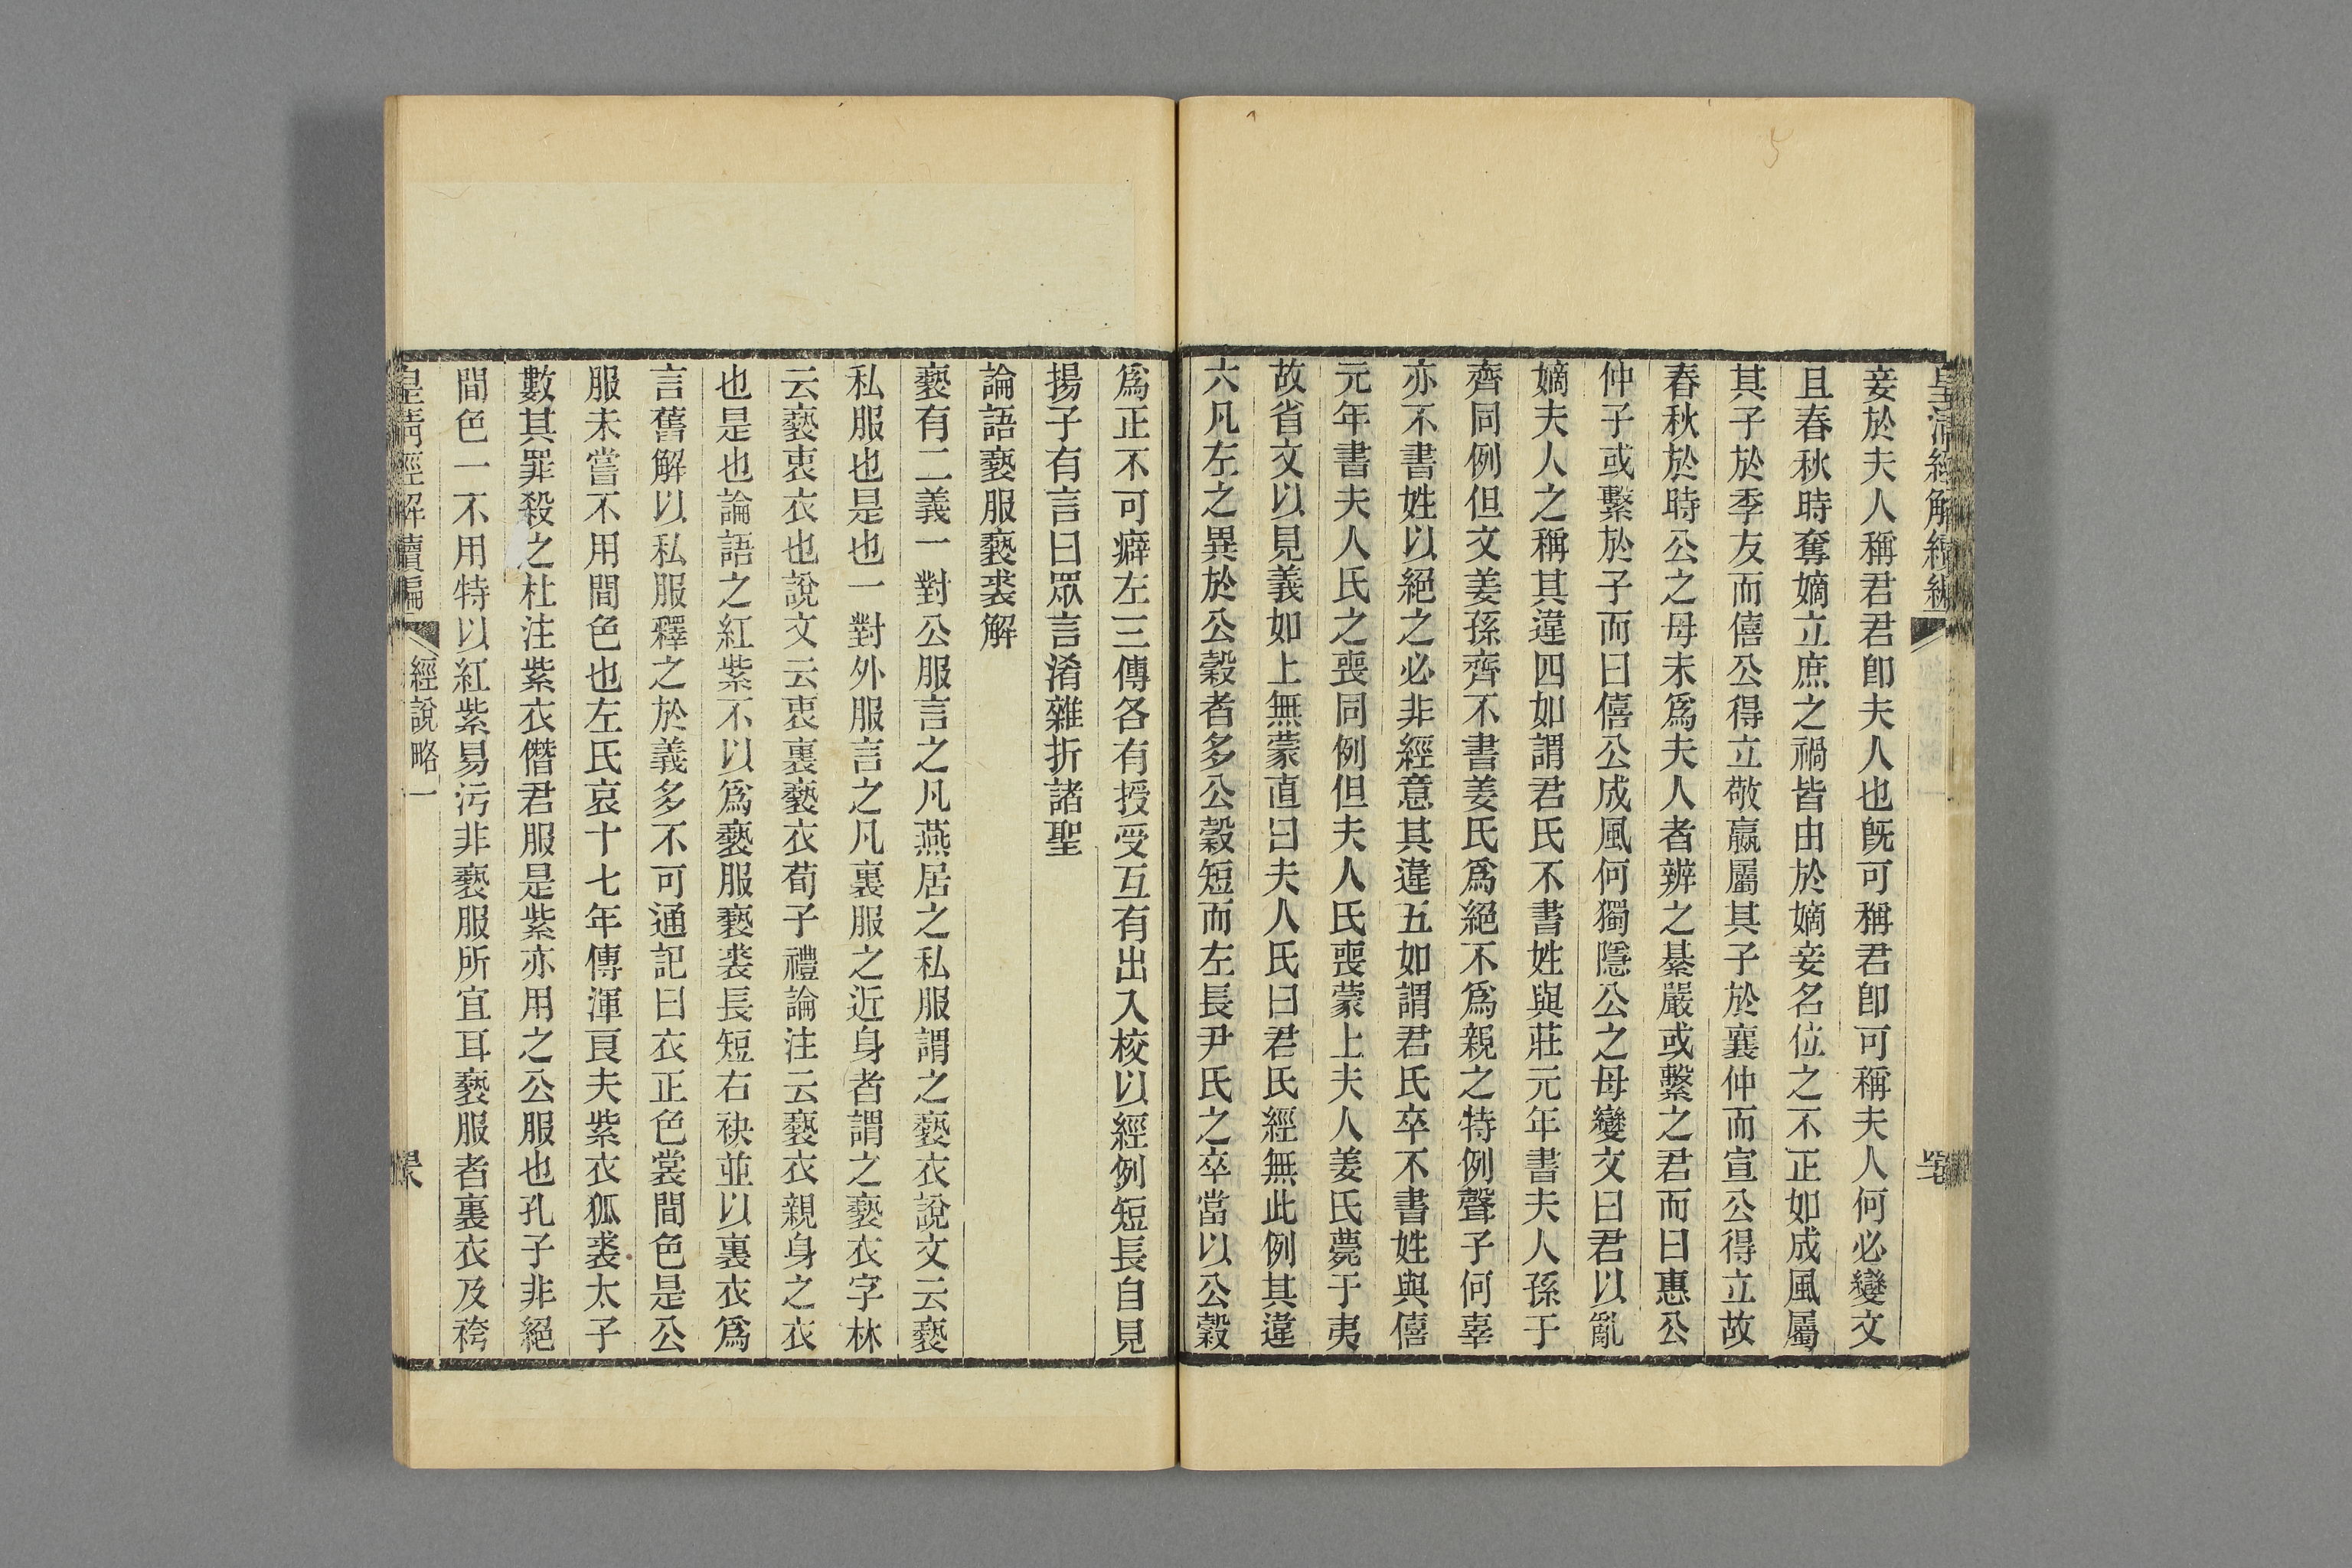 皇清經解續編
妾於夫人稱君君卽夫人也既可稱君卽可稱夫人何必變文
且春秋時奪嫡立庶之禍皆由於嫡妾名位之不正如成風屬
其子於季友而僖公得立敬嬴屬其子於襄仲而宣公得立故
春秋於時公之母未爲夫人者辨之綦嚴或繫之君而曰惠公
仲子或繫於子而曰僖公成風何獨隱公之母變文曰君以亂
嫡夫人之稱其違四如謂君氏不書姓與莊元年書夫人孫于
齊同例但文姜孫齊不書姜氏爲絕不爲親之特例聲子何辜
亦不書姓以絕之必非經意其違五如謂君氏卒不書姓與僖
元年書夫人氏之喪同例但夫人氏喪蒙上夫人姜氏薨于夷
故省文以見義如上無蒙直曰夫人氏曰君氏經無此例其違
六凡左之異於公穀者多公穀短而左長尹氏之卒當以公穀
爲正不可癖左三傳各有授受互有出入校以經例短長自見
揚子有言曰眾言淆雜折諸聖
論語褻服褻裘解
褻有二義一對公服言之凡燕居之私服謂之褻衣說文云褻
私服也是也一對外服言之凡裏服之近身者謂之褻衣字林
云褻衷衣也說文云衷裏褻衣荀子禮論注云褻衣親身之衣
也是也論語之紅紫不以爲褻服褻裘長短右袂並以裏衣爲
言舊解以私服釋之於義多不可通記曰衣正色裳間色是公
服未嘗不用間色也左氏哀十七年傳渾良夫紫衣狐裘太子
數其罪殺之杜注紫衣僭君服是紫亦用之公服也孔子非絕
間色一不用特以紅紫易污非褻服所宜耳褻服者裏衣及袴
皇清經解續編
經說略一